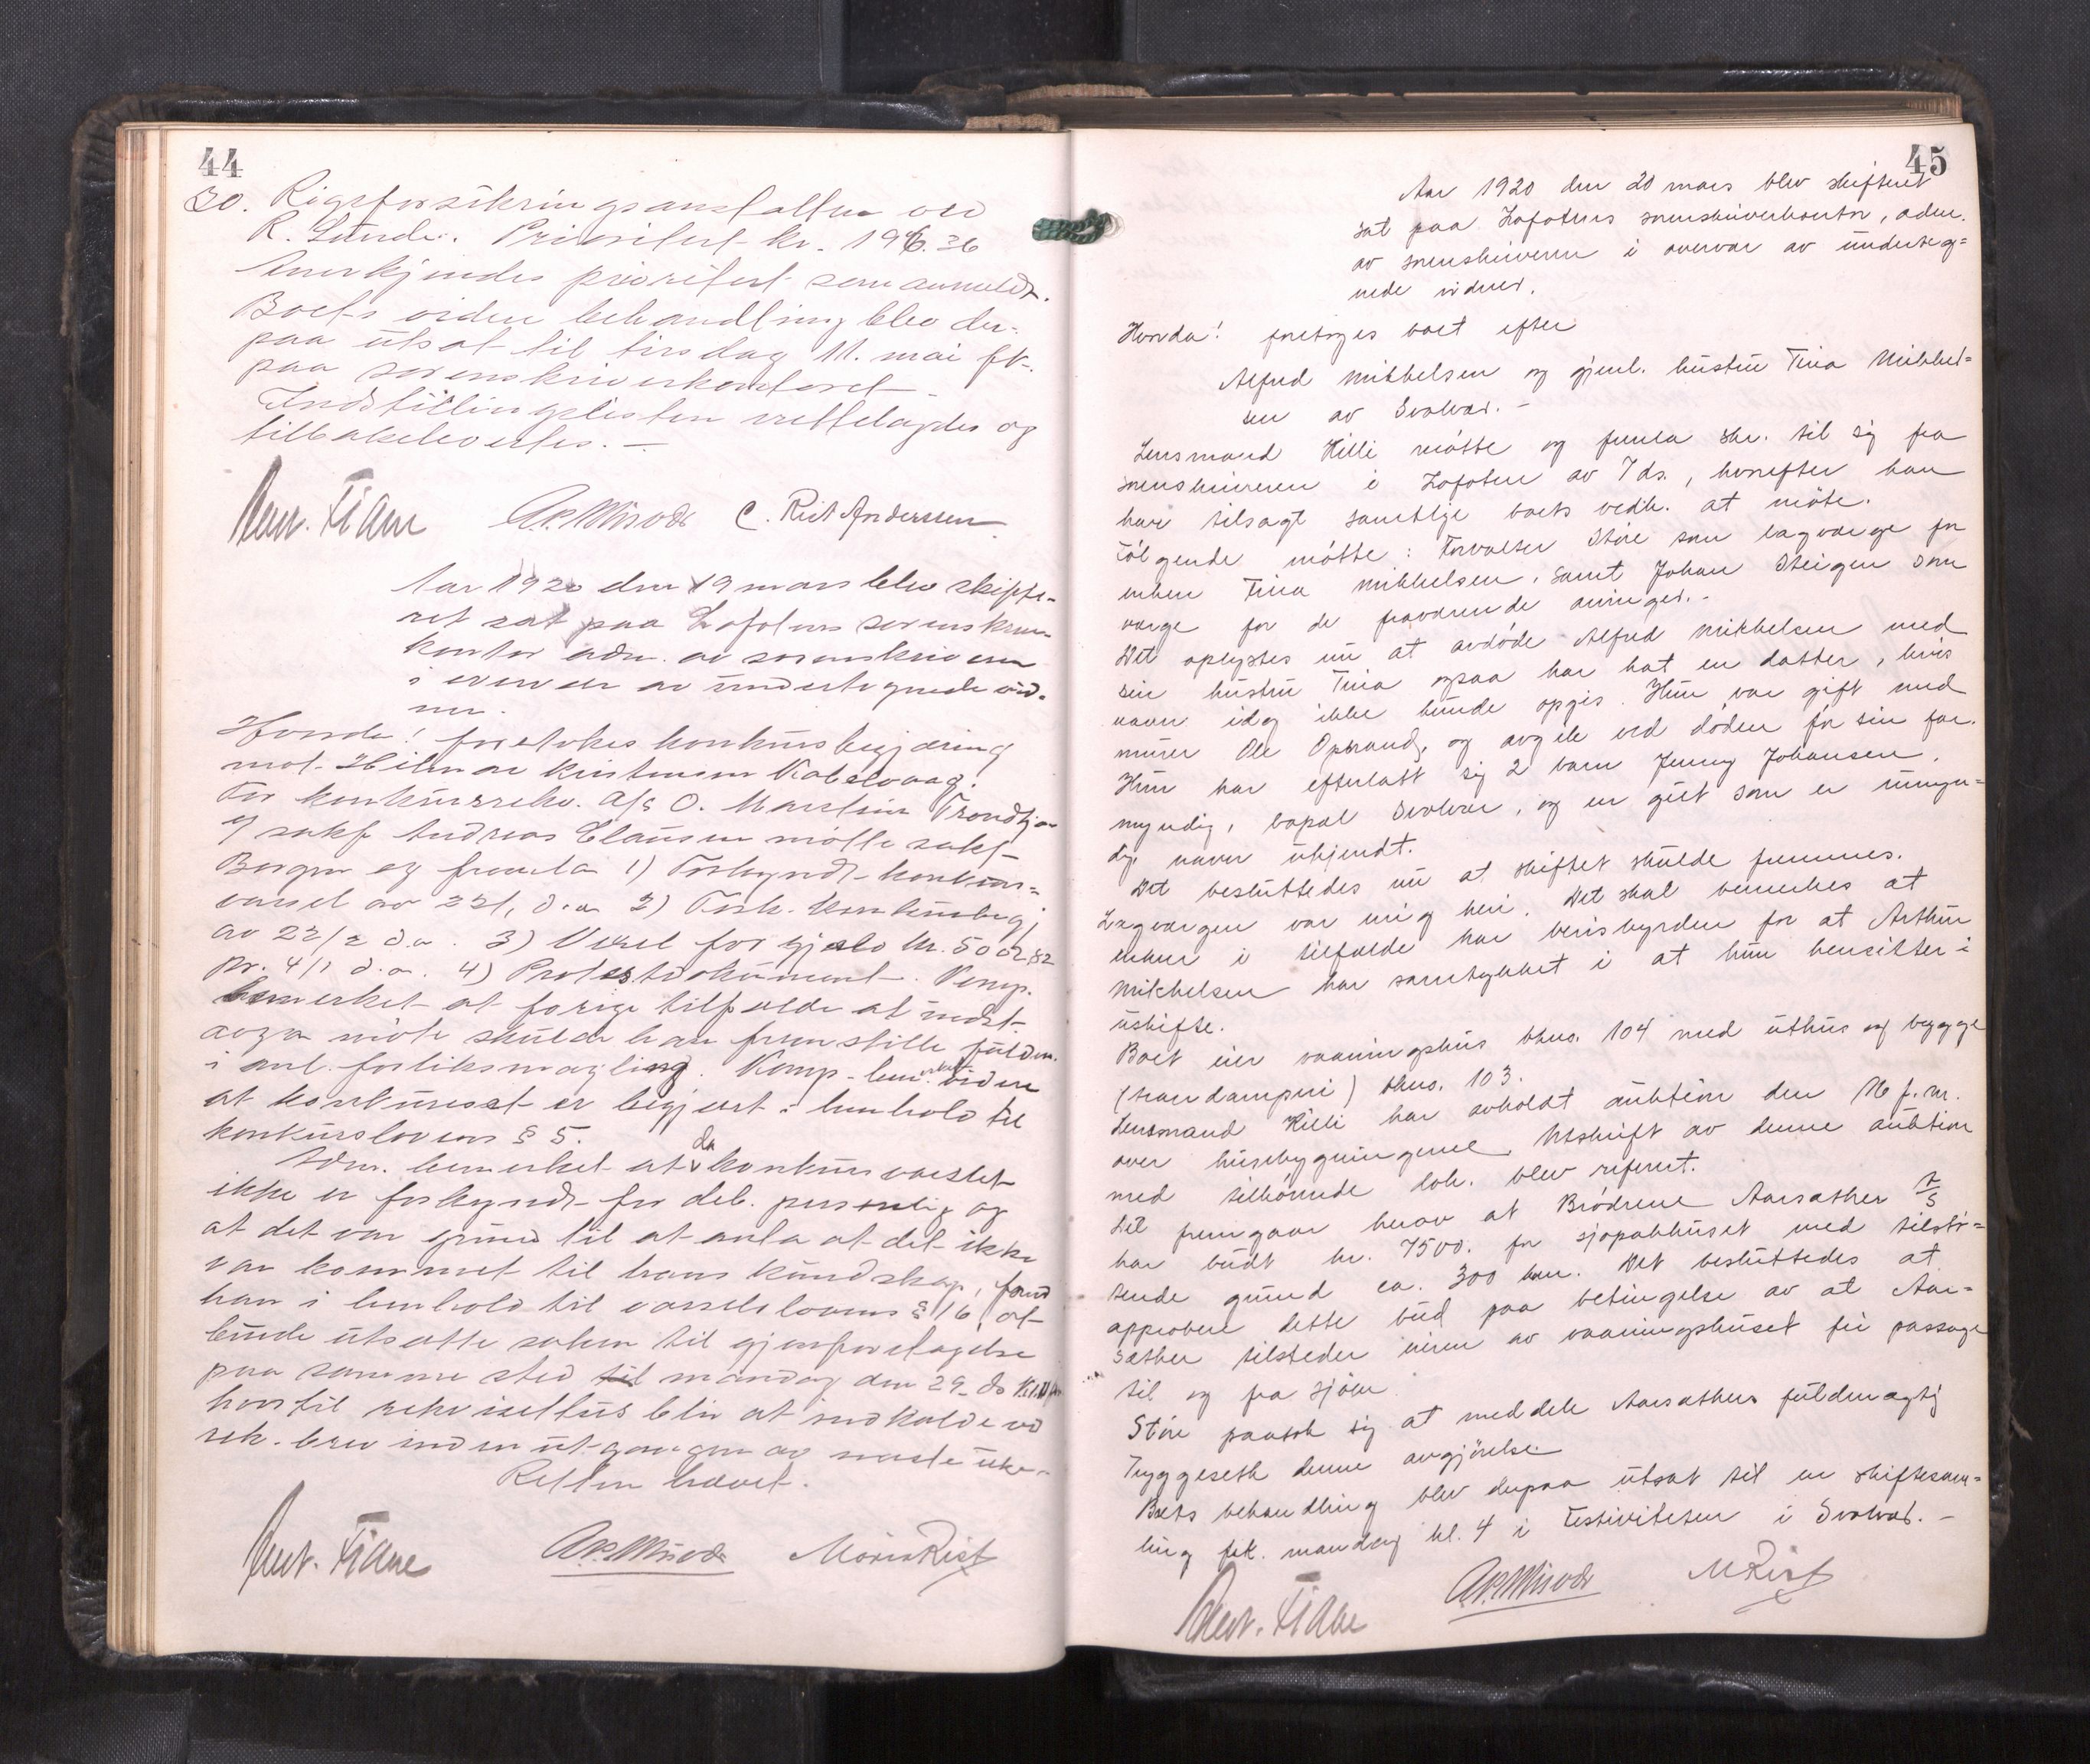 44
30. Rigsforsikringsanstalten ved
R. Lunde. Prioritert kr. 196.36
Anerkjendes prioritert som anmeldt.
Boets videre behandling blev der-
paa utsat til tirsdag 11. mai fk.
paa sorenskriverkontoret
Indstillingslisten rettelagdes og
tilbakelevertes. —
C. Rist Anderssen
Aar 1920 den 19 mars blev skifte-
ret sat paa Lofotens sorenskriver
kontor adm. av sorenskriveren
i overvær av undertegnede vid-
ner.
Hvorda! foretokes konkursbegjæring
mot Hilmar Kristensen Kabelvaag.
For konkursrekv. A/s O. Trondhjem
og sakf. Andreas Clausen møtte sakf.
Borgen og fremla 1) Forkyndt konkurs=
varsel av 22/1 d.a 2) Fork. konkursbegj
av 22/2 d.a. 3) Vexel for gjæld kr. 5002,82
pr. 4/1 d.a. 4) Protestdokument. Komp.
bemerket at forrige tilfælde at indst.
møte skulde han fremstille fuldm.
i anl. forliksmægling. Komp. bem. videre
at konkursen er begjært i henhold til
konkurslovens § 5.
Adm. bemerket at da konkursvarslet
ikke er forkyndt for deb. personlig og
at det var grund til at anta at det ikke
var kommet til hans kundskap, fandt
han i henhold til varselslovens § 16 at
burde utsætte saken til gjenforetagelse
paa samme sted til mandag den 29 ds kl.
hvortil rekvisitus blir at indkalde ved
rek. brev inden utgangen av næste uke.
Retten hævet.
Moris Rist
45
Aar 1920 den 20 mars blev skifteret
sat paa Lofotens sorenskriverkontor, adm.
av sorenskriveren i overvær av underteg=
nede vidner.
Hvorda! foretoges boet efter
Alfred Mikkelsen og gjenl. hustru Tina Mikkel=
sen av Svolvær. —
Lensmand Killi møtte og fremla skr. til sig fra
sorenskriveren i Lofoten av 7 ds., hvorefter han
har tilsagt samtlige boets vedk. at møte.
Følgende møtte: Forvalter Støre som lagværge for
enken Tina Mikkelsen, samt Johan Steigen som
værge for de fraværende arvinger. -
Det oplystes nu at avdøde Alfred Mikkelsen med
sin hustru Tina ogsaa har hat en datter, hvis
navn idag ikke kunde opgis. Hun var gift med
murer Ole Opsand, og avgik ved døden før sin far.
Hun har efterlatt sig 2 barn Jenny Johansen,
myndig, bopæl Svolvær, og en gut som er umyn=
dig, navn ukjendt.
Det besluttedes nu at skiftet skulde fremmes.
Lagværgen var enig heri. Det skal bemerkes at
enken i tilfælde har bevisbyrden for at Arthur
Mikkelsen har samtykket i at hun hensitter i
uskifte.
Boet eier vaaningshus bnr. 104 med uthus og brygge
(trandamperi) bnr. 103.
Lensmand Killi har avholdt auktion den 16 f.m.
over husebygningene. Utskrift av denne auktion
med tilhørende dok. blev referert.
Det fremgaar herav at Brødrene Aarsæther A/S
har budt kr. 7500. for sjøpakhuset med tilstø=
tende grund ca. 300 kvm. Det besluttedes at
approbere dette bud paa betingelse av at Aar=
sæther tilsteder eieren av vaaningshuset fri passage
til og fra sjøen.
Støre paatok sig at meddele Aarsæthers fuldmægtig
Tryggeseth denne avgjørelse.
Boets behandling blev derpaa utsat til en skiftesam=
ling fk. mandag kl. 4 i Festiviteten i Svolvær. —
M Rist